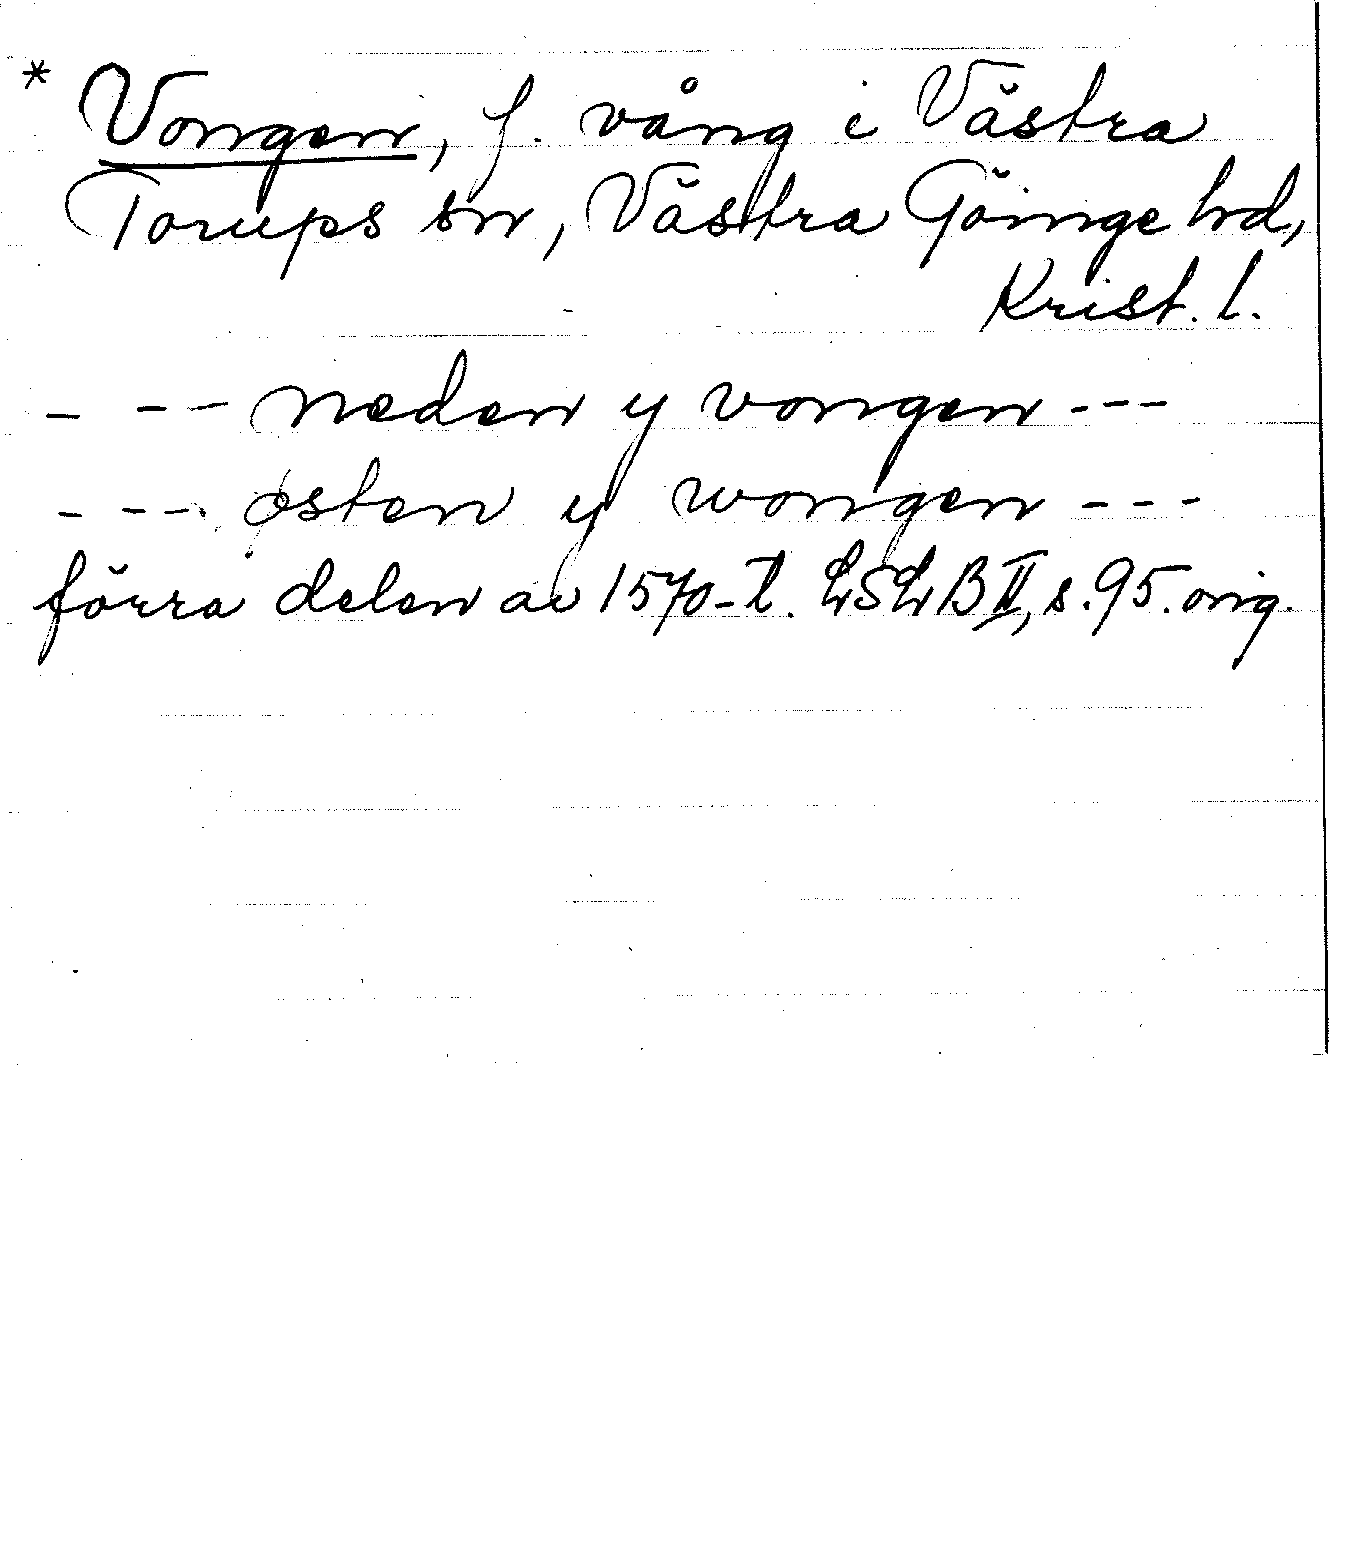 * Vongen, f. vång i Västra
Torups sn, Västra Göinge hd,
Krist. l.
- - - neden y vongen - - -
- - - østen y wongen - - -
förra delen av 1570-t. LSLB II, s. 95. orig.